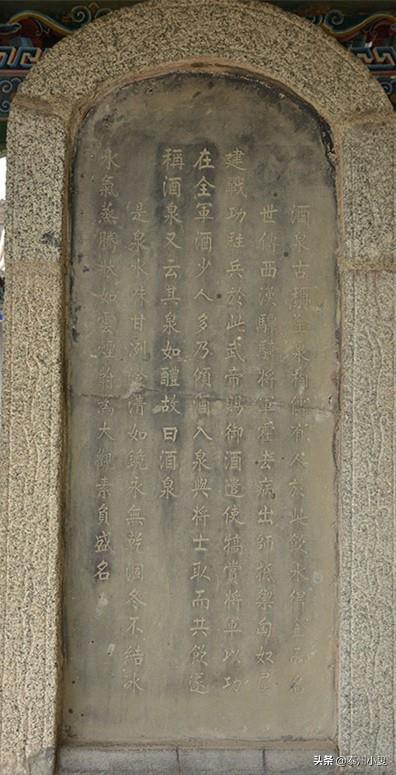 酒泉古稱金泉相傳有人於此飲水得金而名
世傳西漢驃騎將軍霍去病出師抵禦匈奴屢
建戰功駐兵於此武帝賜御酒遣使犒賞將軍以功
在全軍酒少人多乃傾酒入泉與將士取而共飲遂
稱酒泉又云其泉如醴故曰酒泉
是泉水味甘冽澄清如鏡永無乾涸冬不結冰
水氣蒸騰狀如雲煙蔚為大觀素負盛名
头条